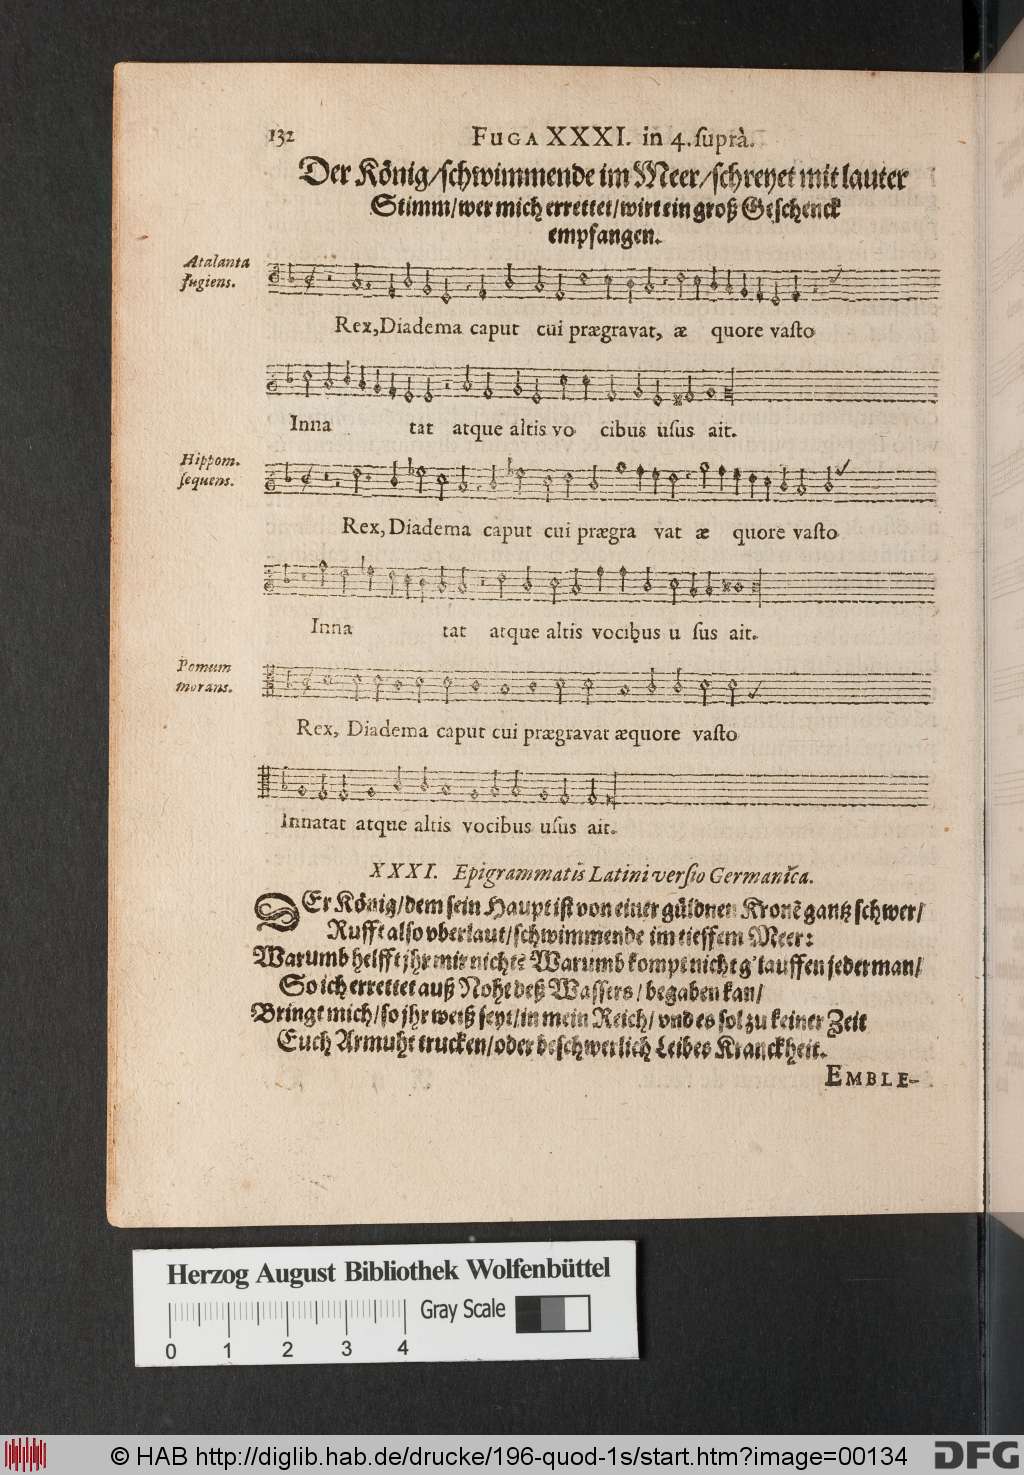 132
FUGA XXXI. in 4. ſuprà.
Der König/ſchwimmende im Meer/ſchreyet mit lauter
Stimm/wer mich errettet/wirt ein groß Geſchenck
empfangen.
Atalanta
fugiens.
Rex, Diadema caput cui prægravat, æ quore vaſto
Inna tat atque altis vo cibus uſus ait.
Hippom.
ſequens.
Rex, Diadema caput cui prægra vat æ quore vaſto
Inna tat atque altis vocibus u ſus ait.
Pomum
morans.
Rex, Diadema caput cui prægravat æquore vaſto
Innatat atque altis vocibus uſus ait.
XXXI. Epigrammatis Latini verſio Germanica.
DEr König/dem ſein Haupt iſt von einer güldnen Kronē gantz ſchwer/
Rufft alſo vberlaut/ſchwimmende im tieffem Meer:
Warumb helfft jhr mir nicht? Warumb kompt nicht g'lauffen jederman/
So ich errettet auß Noht deß Waſſers/begaben kan/
Bringt mich/ſo jhr weiß ſeyt/in mein Reich/vnd es ſol zu keiner Zeit
Euch Armuht trucken/oder beſchwerlich Leibes Kranckheit.
EMBLE-
Herzog August Bibliothek Wolfenbüttel
Gray Scale
0 1 2 3 4
© HAB http://diglib.hab.de/drucke/196-quod-1s/start.htm?image=00134
DFG